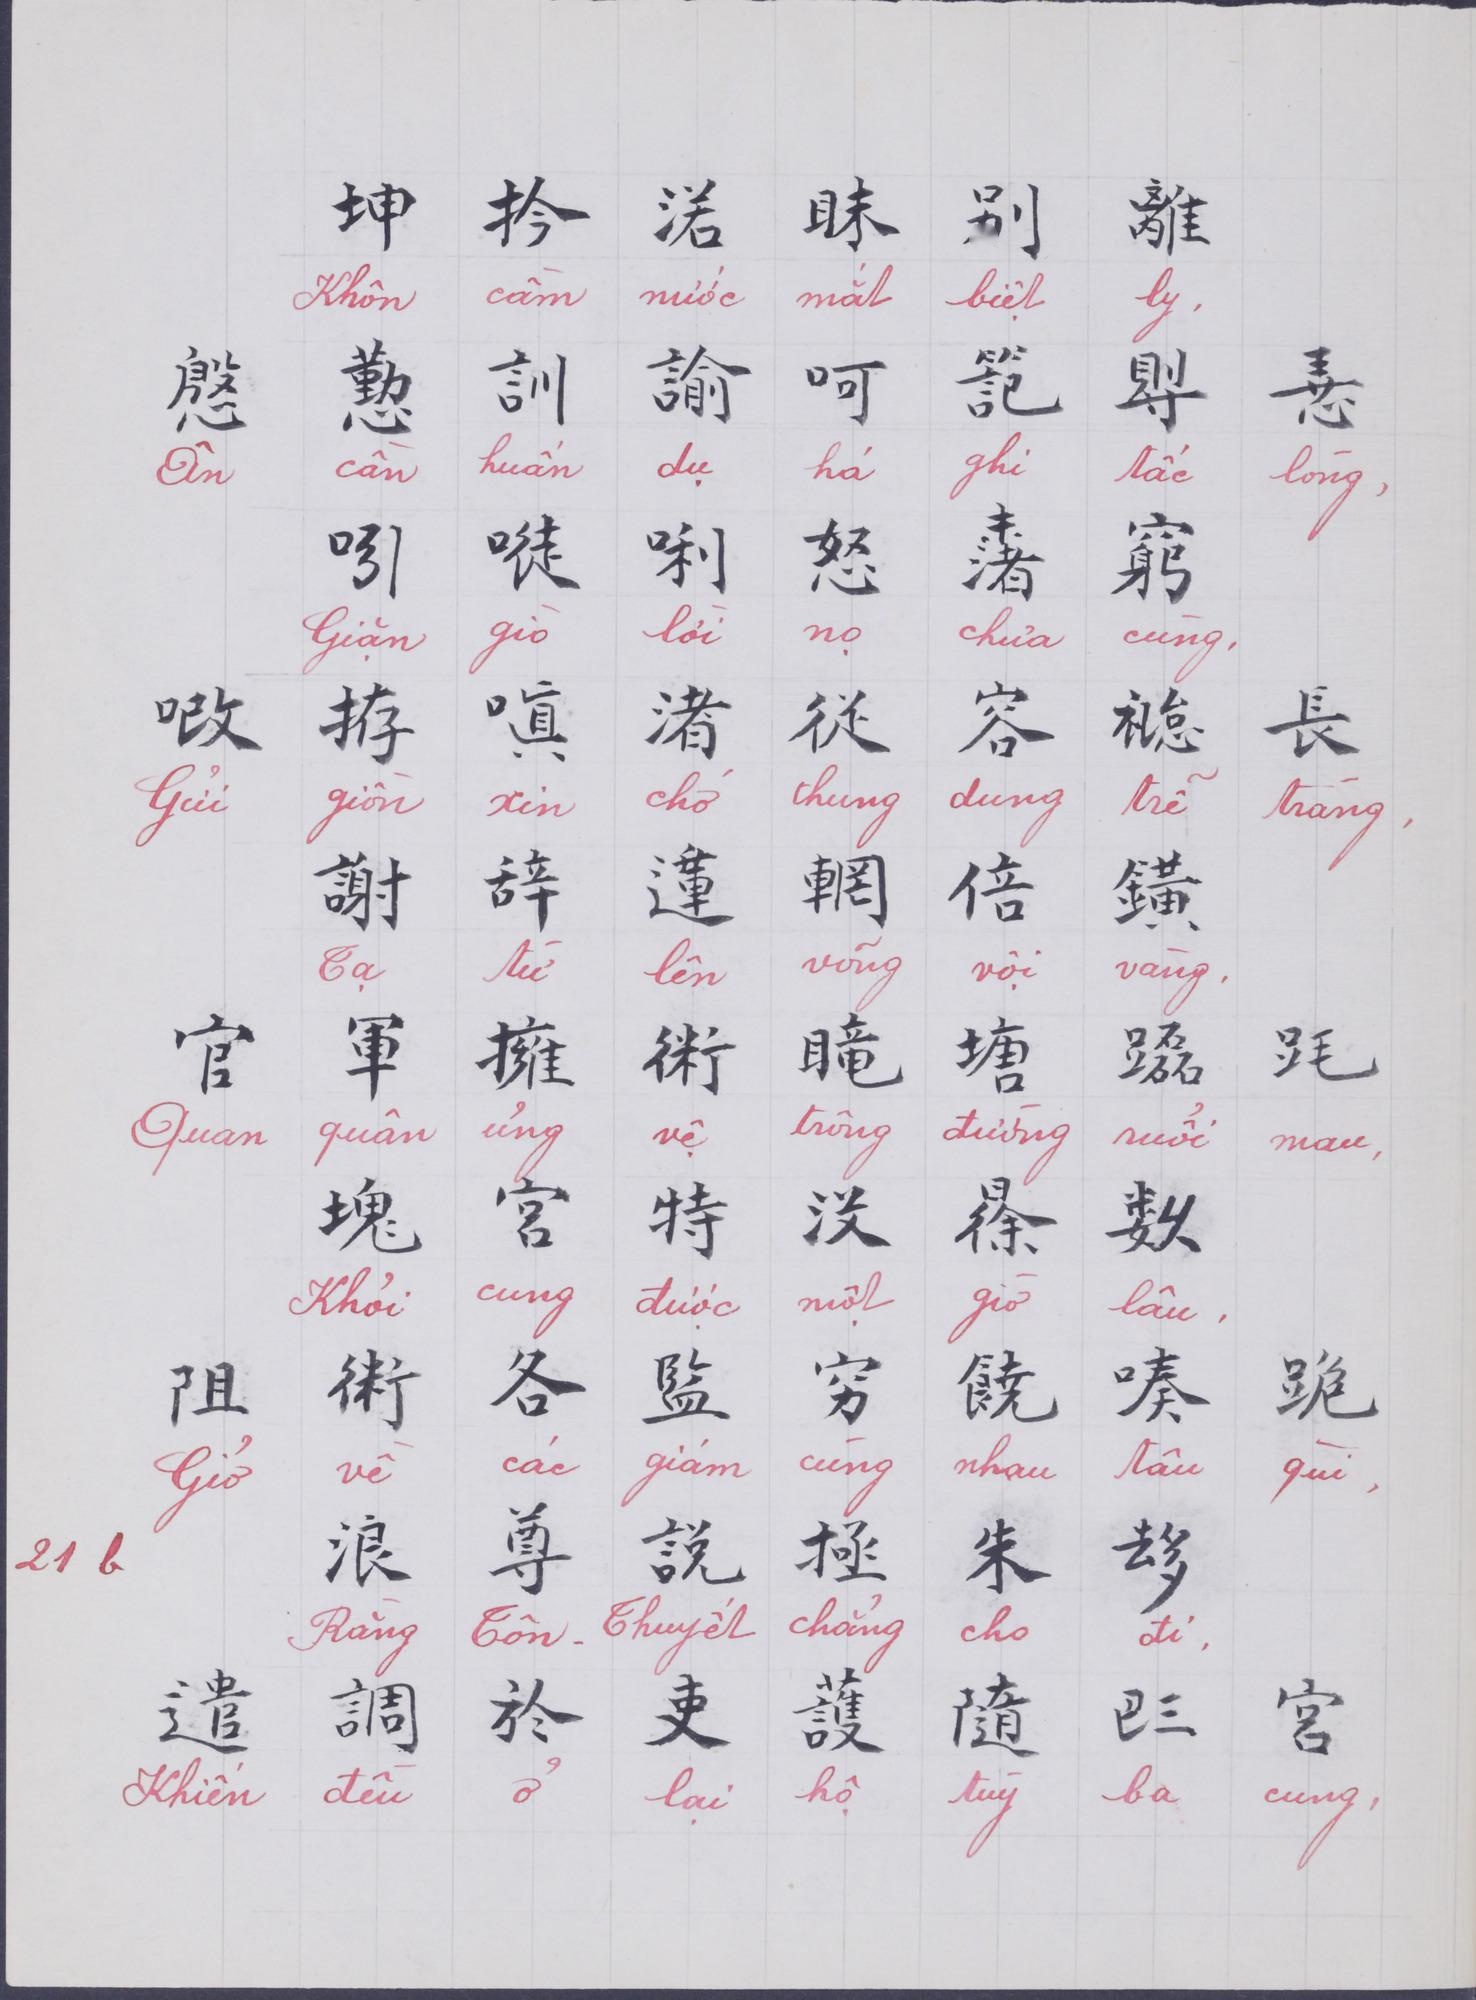 坤扲渃眜別離
Khôn cầm nước mắt biệt ly,
慇懃訓諭呵𥱬𡬷𢚸
Ân cần huấn dụ há ghi tấc lòng,
吲㗭唎怒渚窮
Giặn giò lời nọ chửa cùng,
㗂拵嗔渚從容𥙒長
Gửi giồn xin chớ thung dung trễ tràng,
謝辞蓮輞倍鐄
Tạ từ lên võng vội vàng,
官軍擁術𥊚塘𨇒𨖧
Quan quân ủng vệ trông đường ruổi mau,
塊宮特没𣇞数
Khỏi cung được một giờ lâu,
阻術各監穷饒嗪跪
Giở về các giám cùng nhau tâu quì,
21 b
浪尊説極朱𠫾
Rằng Tôn-Thuyết chẳng cho đi,
遣調於吏護隨𠀧宮
Khiến đều ở lại hộ tùy ba cung,